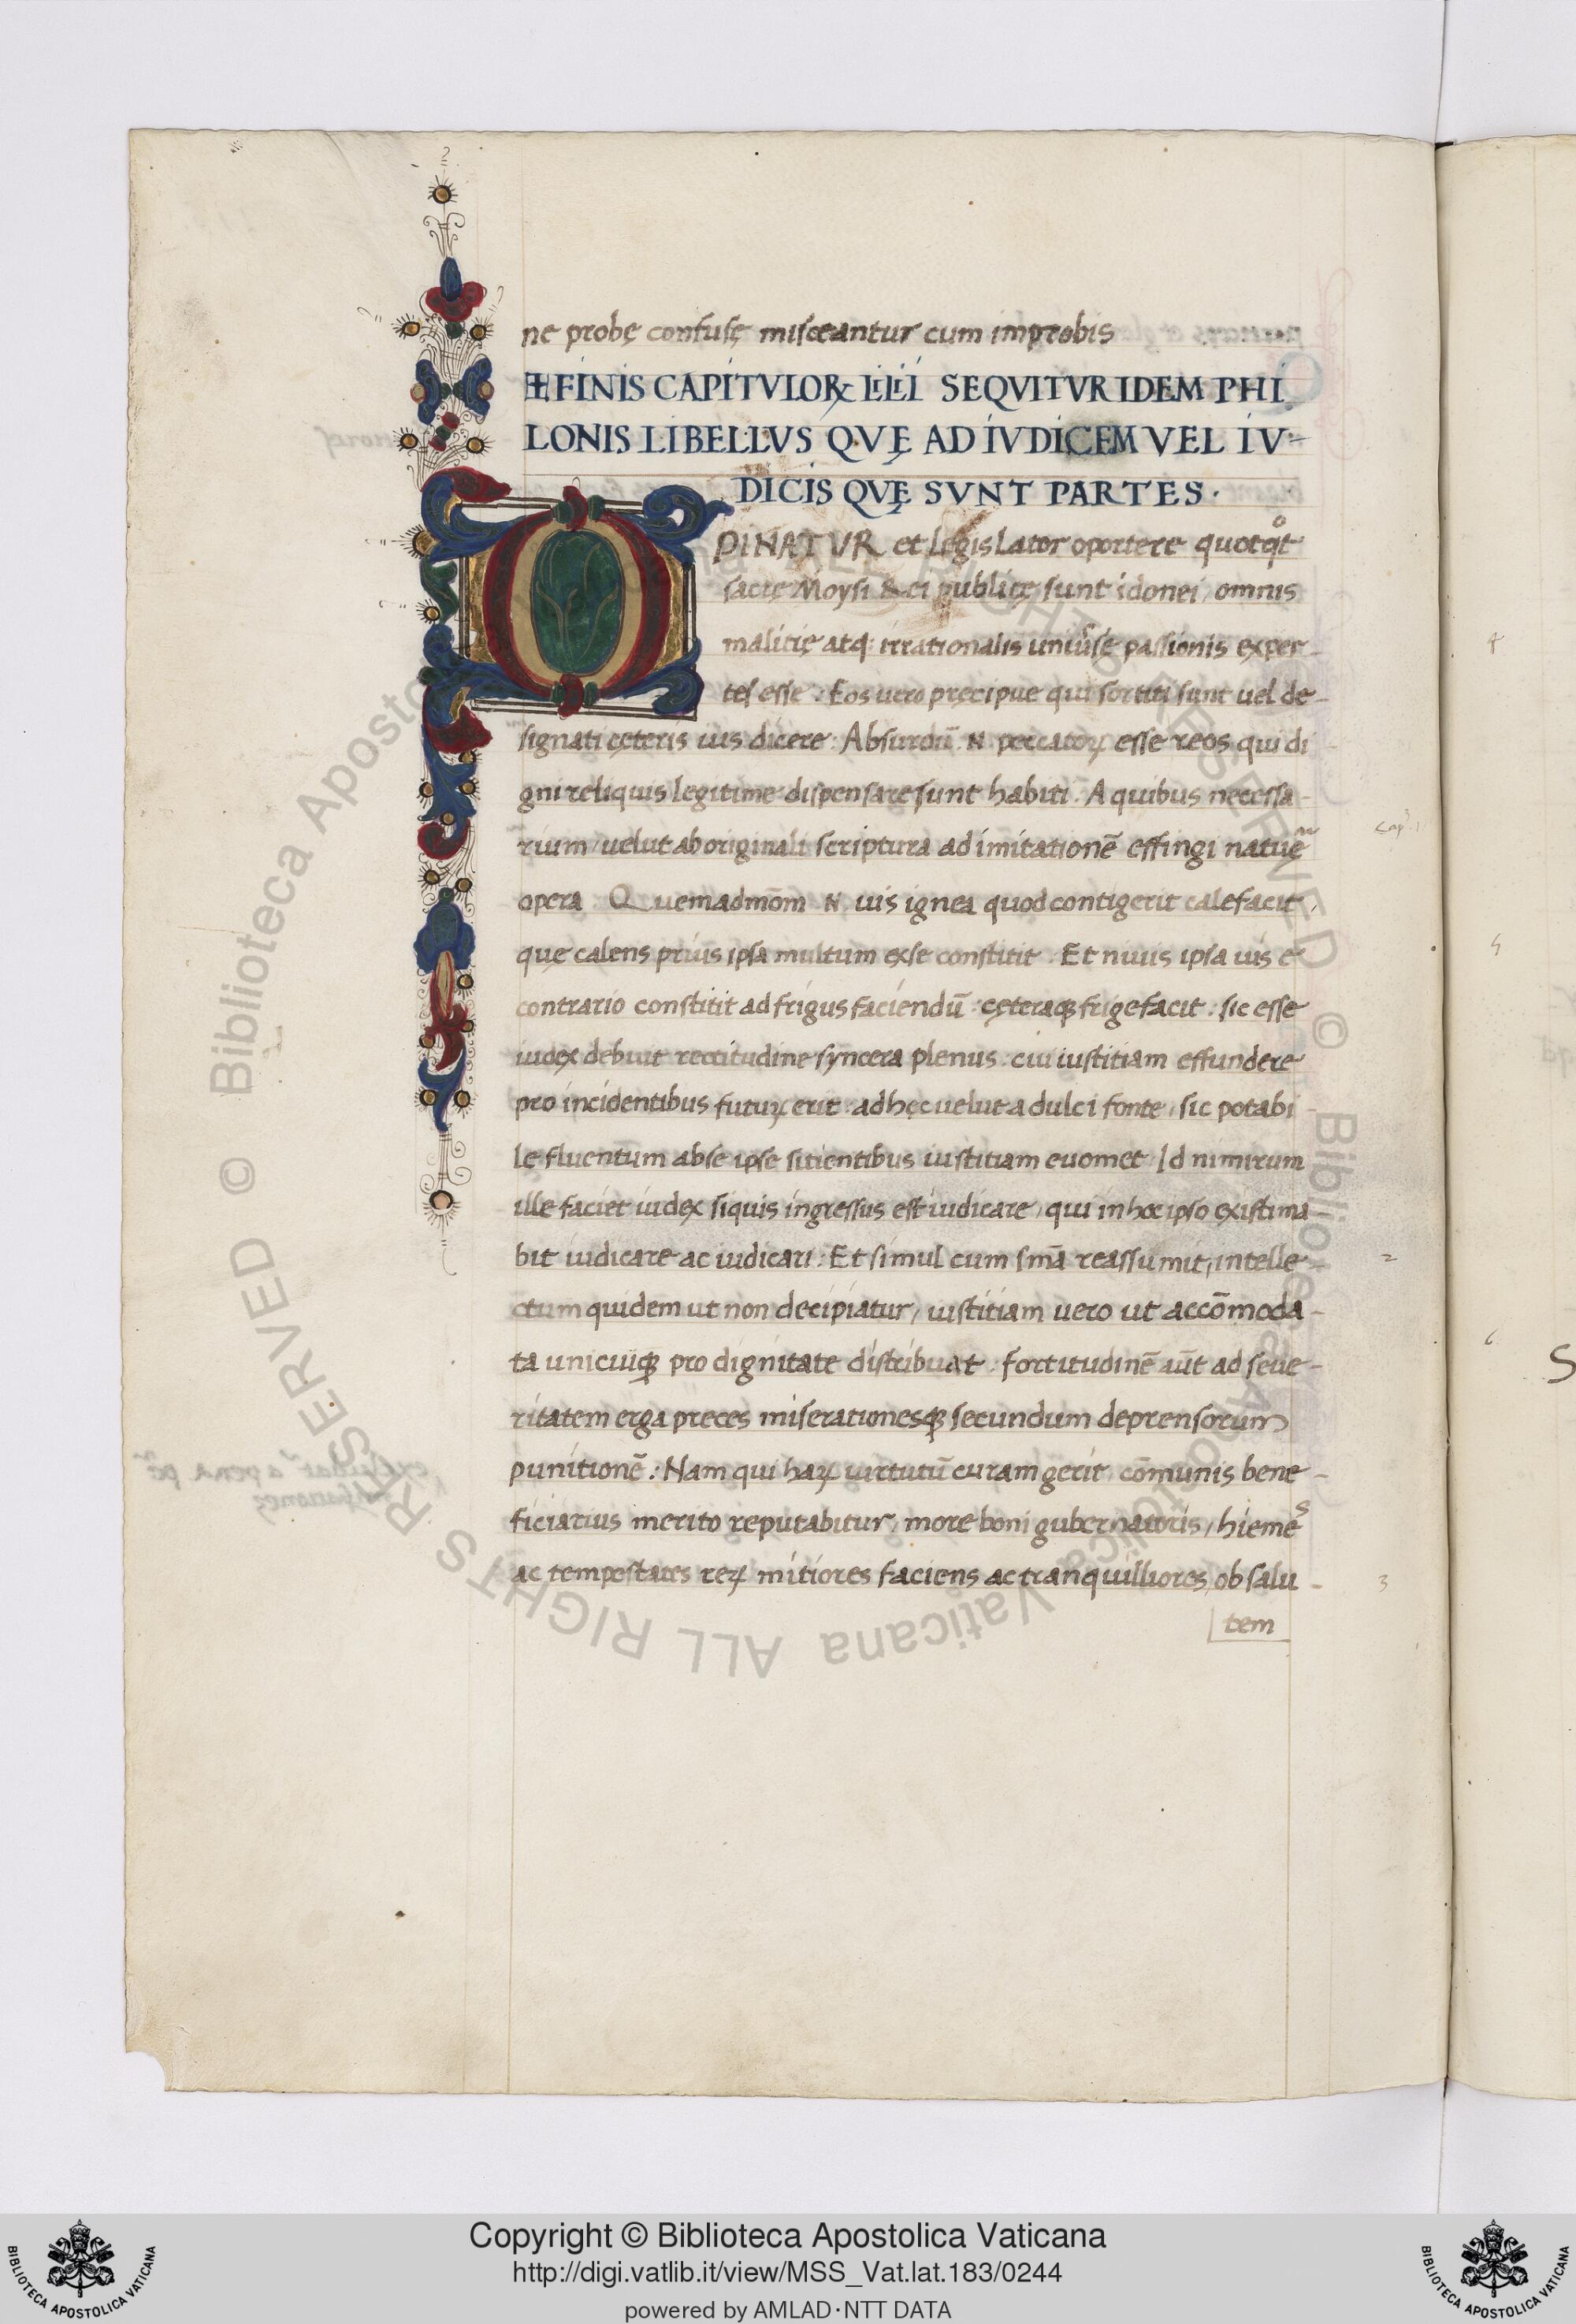 ne probę confusę misceantur cum improbis
FINIS CAPITVLOꝜ LIIII SEQVITVR IDEM PHI
LONIS LIBELLVS QVĘ AD IVDICEM VEL IV-
DICIS QVĘ SVNT PARTES.
OPINATUR et Legislator oportere quotqͦt
sacrę Moysi & ei publicę sunt idonei, omnis
malitię atq; irrationalis uniůse passionis exper-
tes esse: Eos uero pręcipue qui sortiti sunt uel de-
signati cęteris ius dicere: Absurdū .N. peccatoꝝ esse reos qui di
gni reliquis legitime dispensare sunt habiti: A quibus necessa-
rium uelut ab originali scriptura ad imitationē effingi
opera. Quemadmōm .N. uis ignea quod contigerit calefacit,
quę calens prius ipsa multum exse constitit: Et niuis ipsa uis e
contrario constitit ad frigus faciendū: cęteraqꝫ frigefacit: sic esse
iudex debuit rectitudine syncera plenus: cui iustitiam effundere
pro incidentibus futuꝝ erit: adhęc uelut a dulci fonte, sic potabi-
le fluentum abse ipse sitientibus iustitiam euomet. Id nimirum
ille faciet iudex siquis ingressus est iudicare, qui in hoc ipso existima-
bit iudicare ac iudicari: Et simul cum smā reassumit, intelle-
ctum quidem ut non decipiatur, iustitiam uero ut accōmoda-
ta unicuiqꝫ pro dignitate distribuat: fortitudinē aūt ad seue-
ritatem erga preces miserationesqꝫ secundum deprensorum
punitionē: Nam qui haꝝ uirtutū curam gerit, cōmunis bene-
ficiarius merito reputabitur, more boni gubernatoris, hiemes
ac tempestates reꝝ mitiores faciens ac tranquilliores, ob salu-
tem
Cap. 1
2
3
4
5
6
S
Copyright © Biblioteca Apostolica Vaticana
http://digi.vatlib.it/view/MSS_Vat.lat.183/0244
powered by AMLAD·NTT DATA
BIBLIOTECA APOSTOLICA VATICANA
BIBLIOTECA APOSTOLICA VATICANA
© Biblioteca Apostolica Vaticana ALL RIGHTS RESERVED